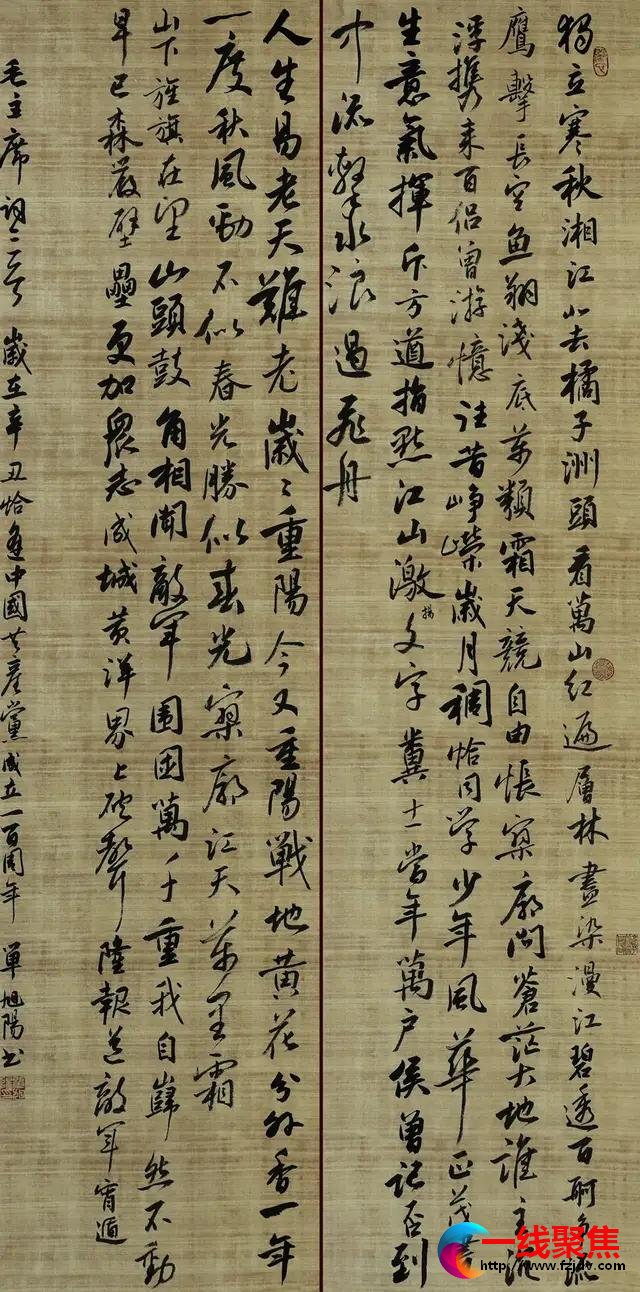 獨立寒秋湘江北去橘子洲頭看萬山红遍層林盡染漫江碧透百舸争流
鷹擊長空魚翔淺底萬類霜天競自由悵寥廓問蒼茫大地誰主沉
浮攜来百侣曾游憶往昔崢嶸歲月稠恰同学少年風華正茂書
生意氣揮斥方遒指點江山激揚文字糞土當年萬户侯曾記否到
中流擊水浪遏飛舟
人生易老天難老歲々重陽今又重陽戰地黄花分外香一年
一度秋風勁不似春光勝似春光寥廓江天萬里霜
山下旌旗在望山頭鼓角相聞敵軍围困萬千重我自巋然不動
早已森嚴壁壘更加衆志成城黄洋界上砲聲隆報道敵軍宵遁
毛主席詞三首 歲在辛丑恰逢中國共產黨成立一百周年 單旭陽书
一线聚焦
http://www.fzjdv.com